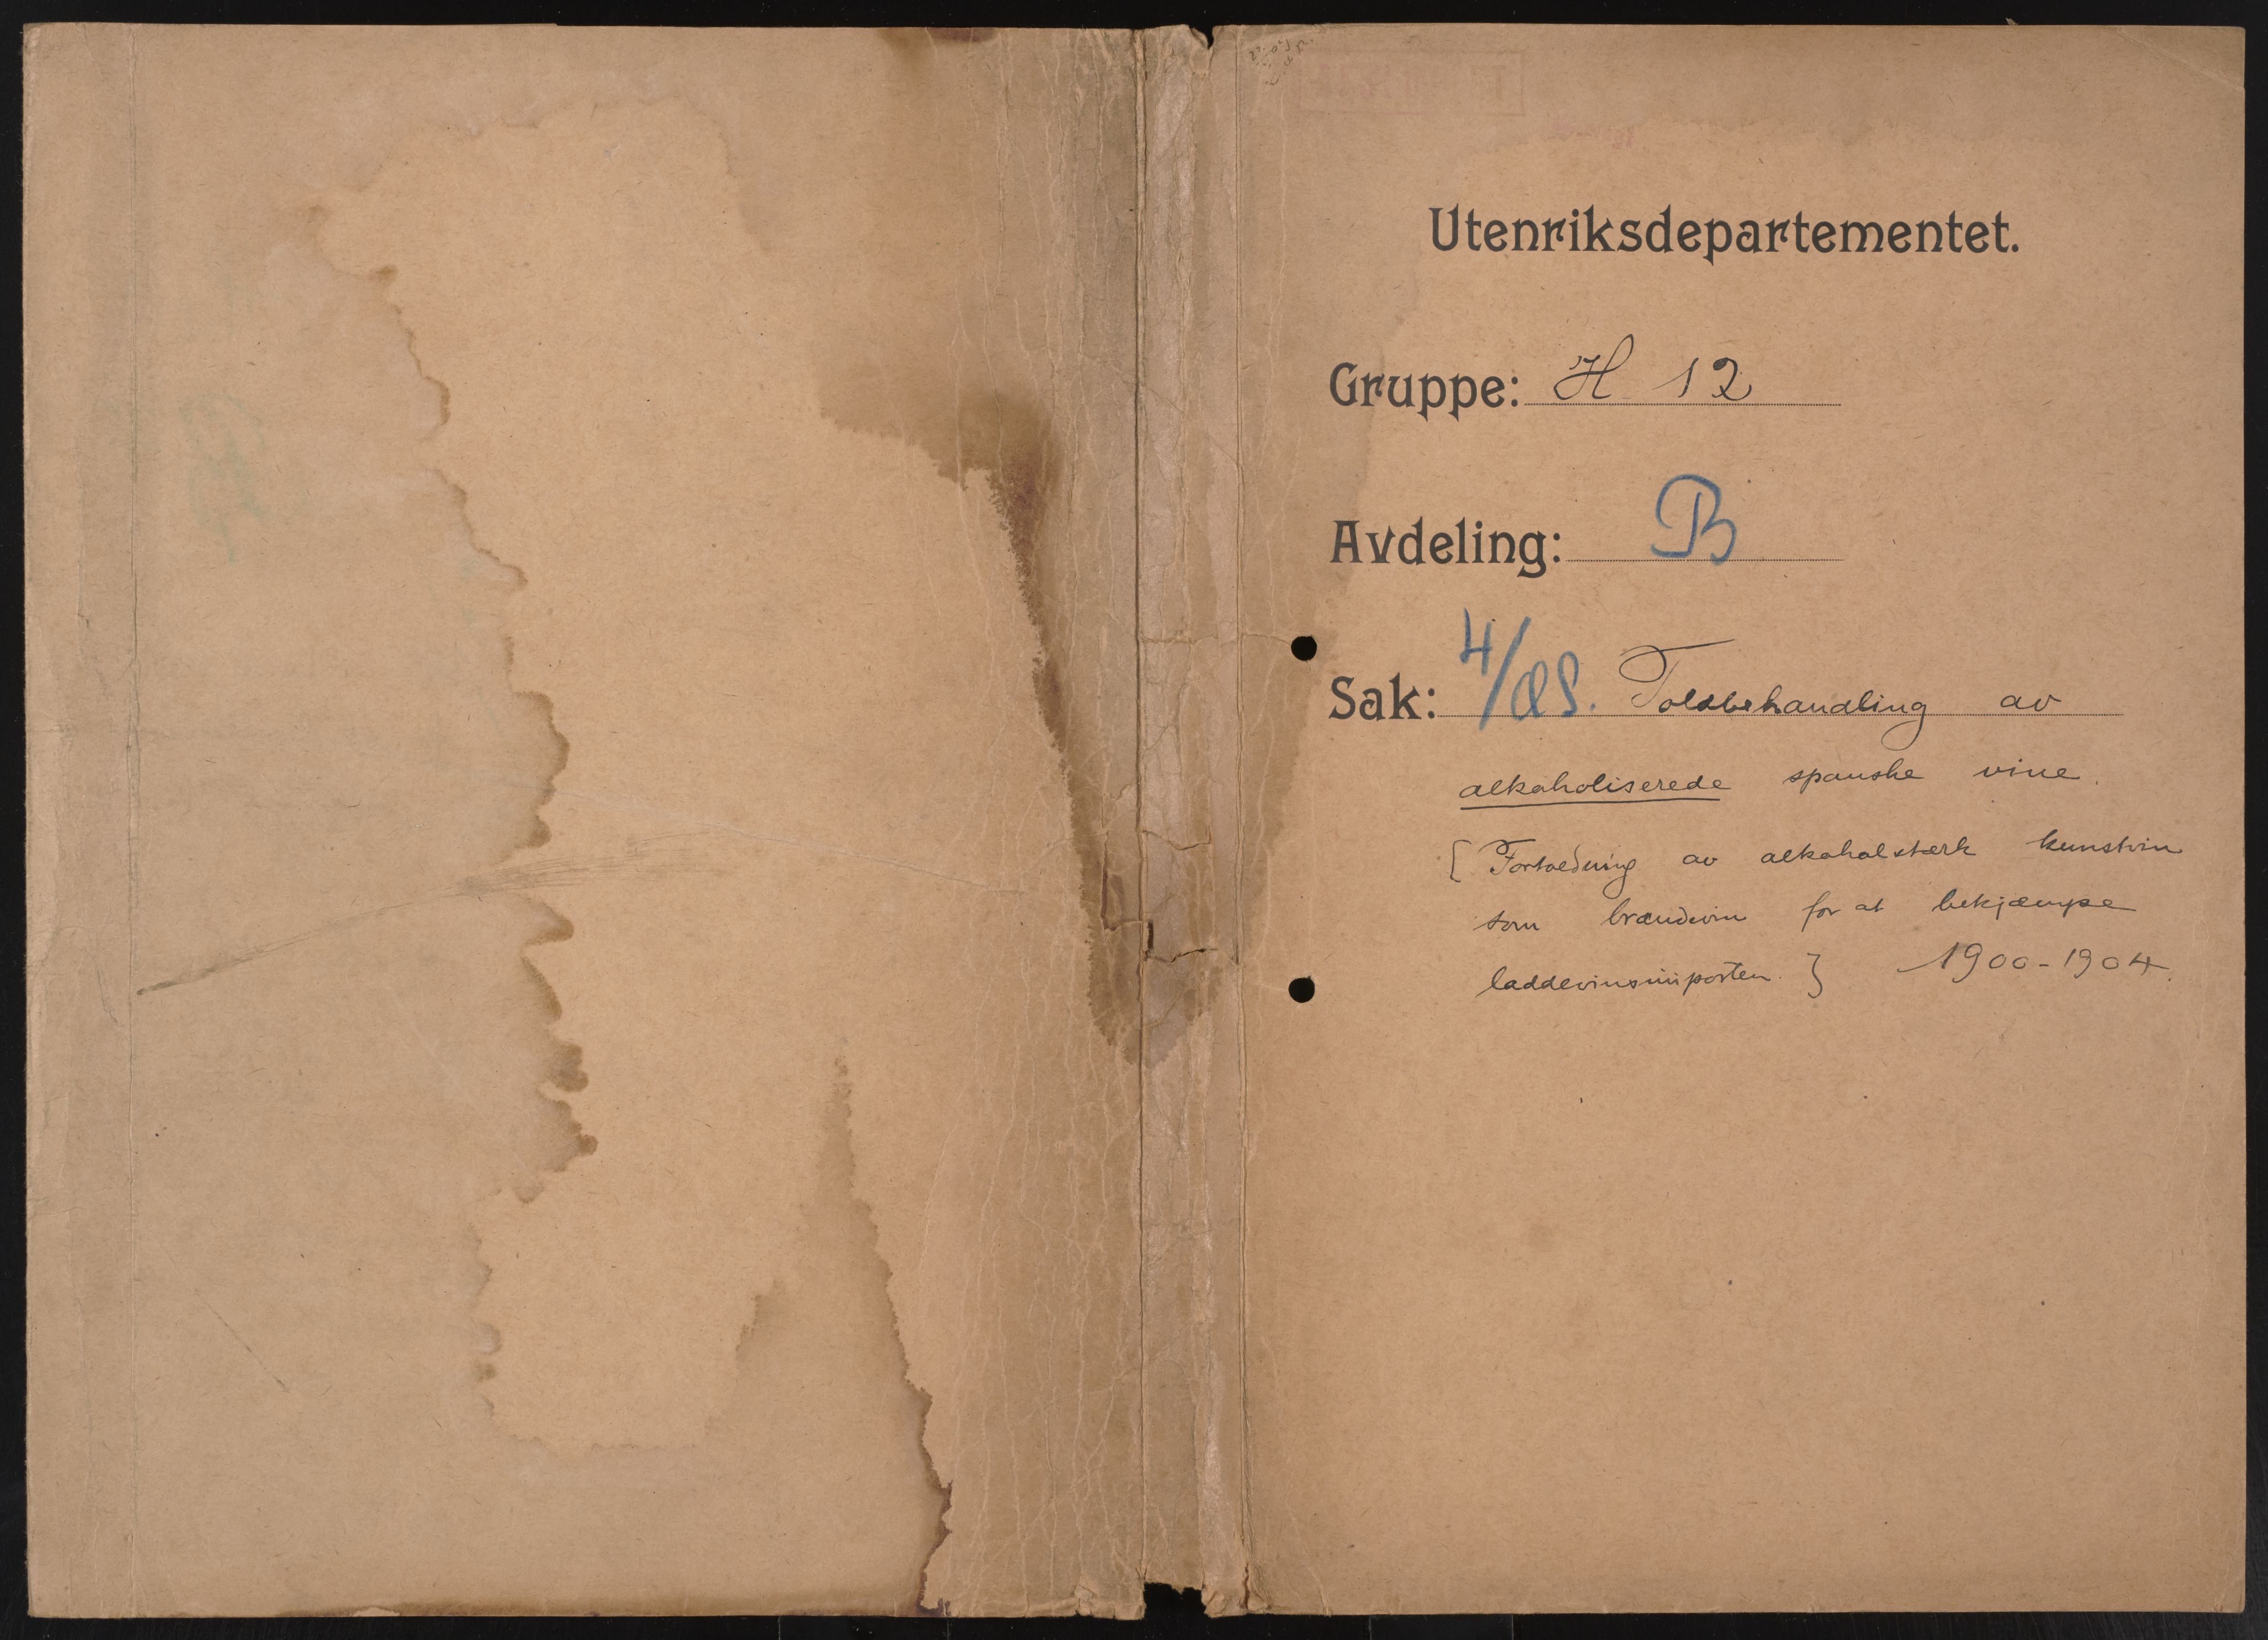 Utenriksdepartementet.
Gruppe: H 12
Avdeling: B
Sak: 4/02. Toldbehandling av
alkoholiserede spanske vine.
[Fortoldning av alkoholstærk kunstvin
som brændevin for at bekjæmpe
laddevinsimporten.} 1900-1904.